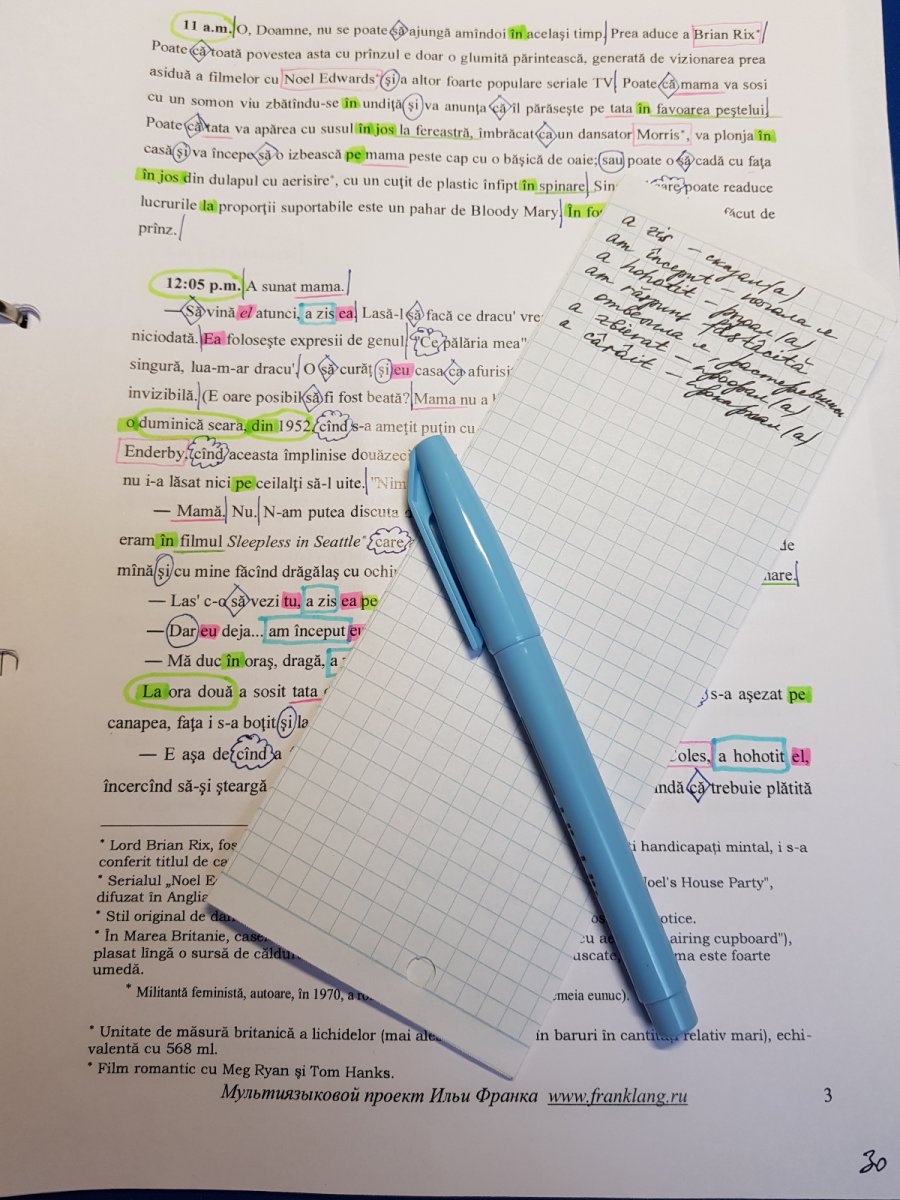 11 a.m. O, Doamne, nu se poate să ajungă amîndoi în acelaşi timp. Prea aduce a Brian Rix*!
Poate că toată povestea asta cu prînzul e doar o glumită părintească, generată de vizionarea prea
asiduă a filmelor cu Noel Edwards* şi a altor foarte populare seriale TV. Poate că mama va sosi
cu un somon viu zbătîndu-se în undiţă şi va anunţa că îl părăseşte pe tata în favoarea peştelui.
Poate că tata va apărea cu susul în jos la fereastră, îmbrăcat ca un dansator Morris*, va plonja în
casă şi va începe să o izbească pe mama peste cap cu o băşică de oaie; sau poate o să cadă cu faţa
în jos din dulapul cu aerisire*, cu un cuţit de plastic înfipt în spinare. Sin care poate readuce
lucrurile la proporţii suportabile este un pahar de Bloody Mary. În fo făcut de
prînz.
12:05 p.m. A sunat mama.
— Să vină el atunci, a zis ea. Lasă-l să facă ce dracu' vre
niciodată. Ea foloseşte expresii de genul: "Ce pălăria mea"
singură, lua-m-ar dracu'. O să curăţ şi eu casa ca afurisi
invizibilă. (E oare posibil să fi fost beată? Mama nu a
o duminică seara, din 1952, cînd s-a ameţit puţin cu
Enderby, cînd aceasta împlinise douăzeci
nu i-a lăsat nici pe ceilalţi să-l uite. "Nim
— Mamă. Nu. N-am putea discuta
eram în filmul Sleepless in Seattle* care de
mînă şi cu mine făcînd drăgălaş cu ochi nare.
— Las' c-o să vezi tu, a zis ea pe
— Dar eu deja... am început eu
— Mă duc în oraş, dragă, a
La ora două a sosit tata s-a aşezat pe
canapea, faţa i s-a boţit şi la
— E aşa de cînd a Coles, a hohotit el,
încercînd să-şi şteargă ndă că trebuie plătită
* Lord Brian Rix, fos i handicapaţi mintal, i s-a
conferit titlul de ca
* Serialul „Noel E Noel's House Party",
difuzat în Anglia
* Stil original de dan otice.
* În Marea Britanie, case cu ae airing cupboard"),
plasat lîngă o sursă de căldur uscate, ma este foarte
umedă.
* Militantă feministă, autoare, în 1970, a ro emeia eunuc).
* Unitate de măsură britanică a lichidelor (mai ales in baruri în cantităţi relativ mari), echi-
valentă cu 568 ml.
* Film romantic cu Meg Ryan şi Tom Hanks.
Мультиязыковой проект Ильи Франка www.franklang.ru 3
30
a zis – сказал(а)
am început – начала я
a hohotit – ржал(а)
am răspuns fâstâcită
ответила я, растерявшись
a zbierat – проорал(а)
a cârâit – прокаркал(а)